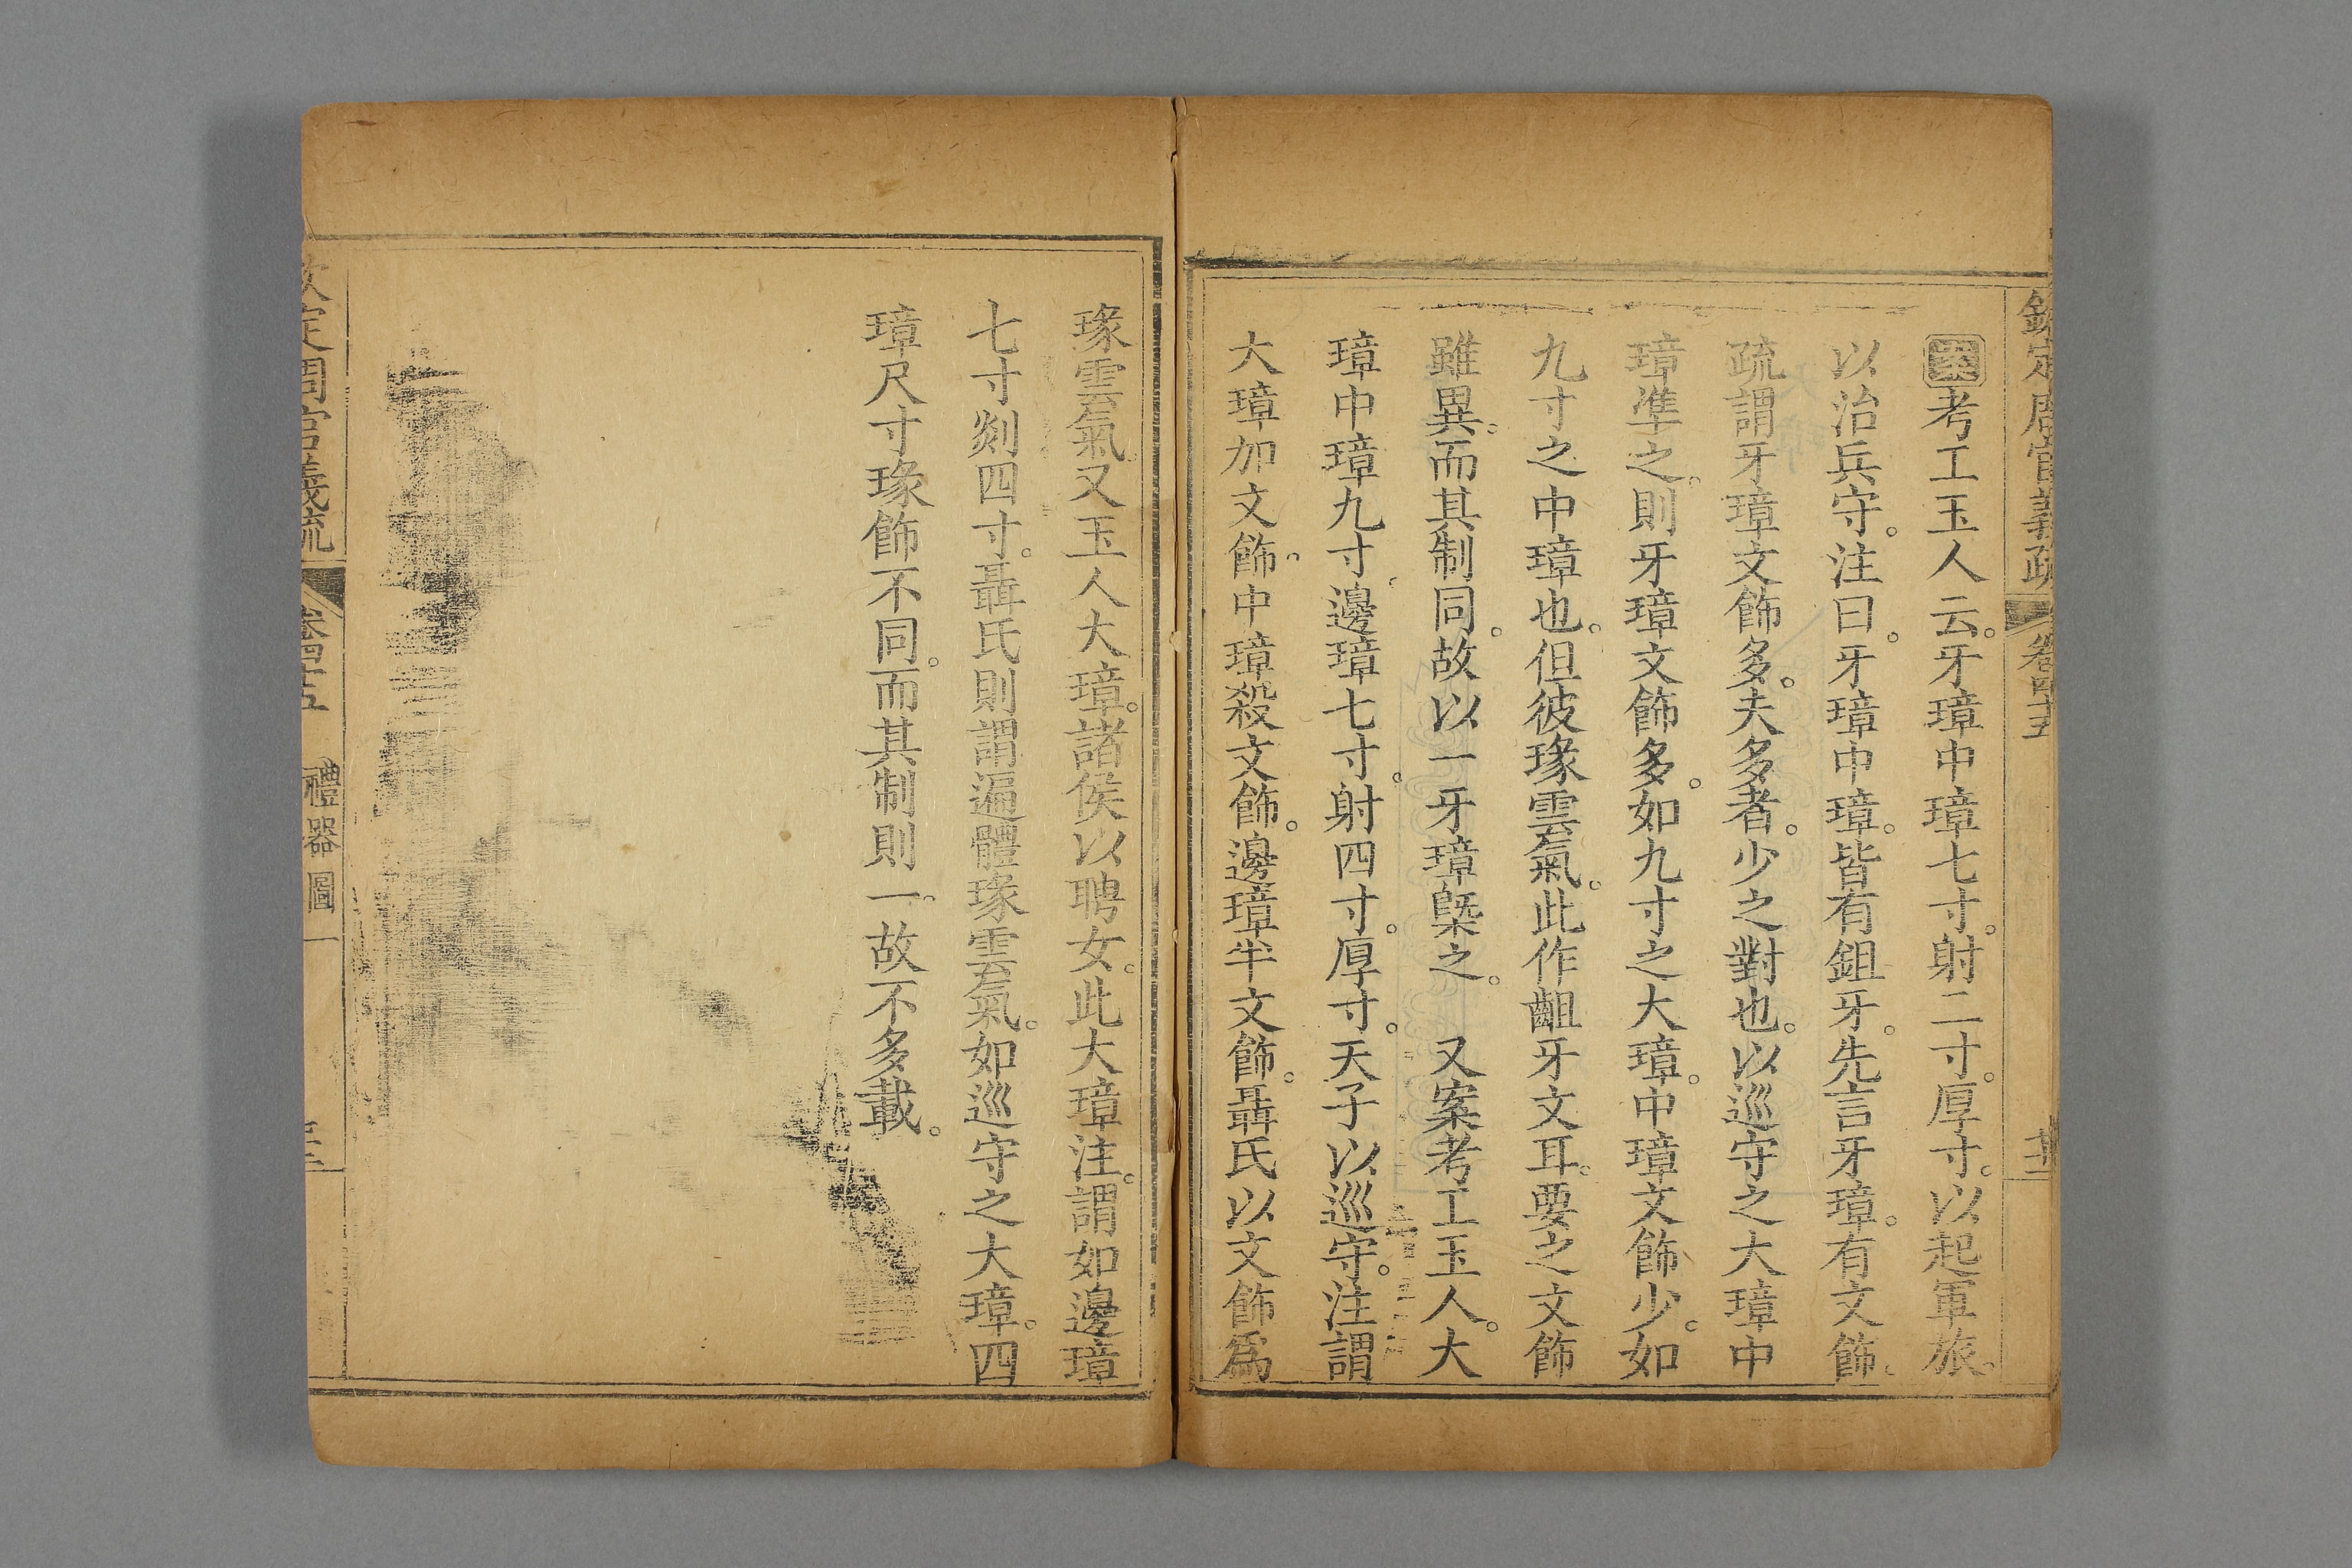 欽定周官義疏 卷四十五
案考工玉人云。牙璋中璋七寸。射二寸。厚寸。以起軍旅。
以治兵守。注曰。牙璋中璋。皆有鉏牙。先言牙璋。有文飾。
疏謂牙璋文飾多。夫多者。少之對也。以巡守之大璋中
璋準之。則牙璋文飾多。如九寸之大璋。中璋文飾少。如
九寸之中璋也。但彼瑑雲氣。此作齟牙文耳。要之文飾
雖異。而其制同。故以一牙璋槩之。 又案考工玉人。大
璋中璋九寸。邊璋七寸。射四寸。厚寸。天子以巡守。注謂
大璋加文飾。中璋殺文飾。邊璋半文飾。聶氏以文飾爲
瑑雲氣。又玉人大璋。諸侯以聘女。此大璋注。謂如邊璋
七寸剡四寸。聶氏則謂遍體瑑雲氣。如巡守之大璋。四
璋尺寸瑑飾不同。而其制則一。故不多載。
欽定周官義疏 卷四十五 禮器圖一